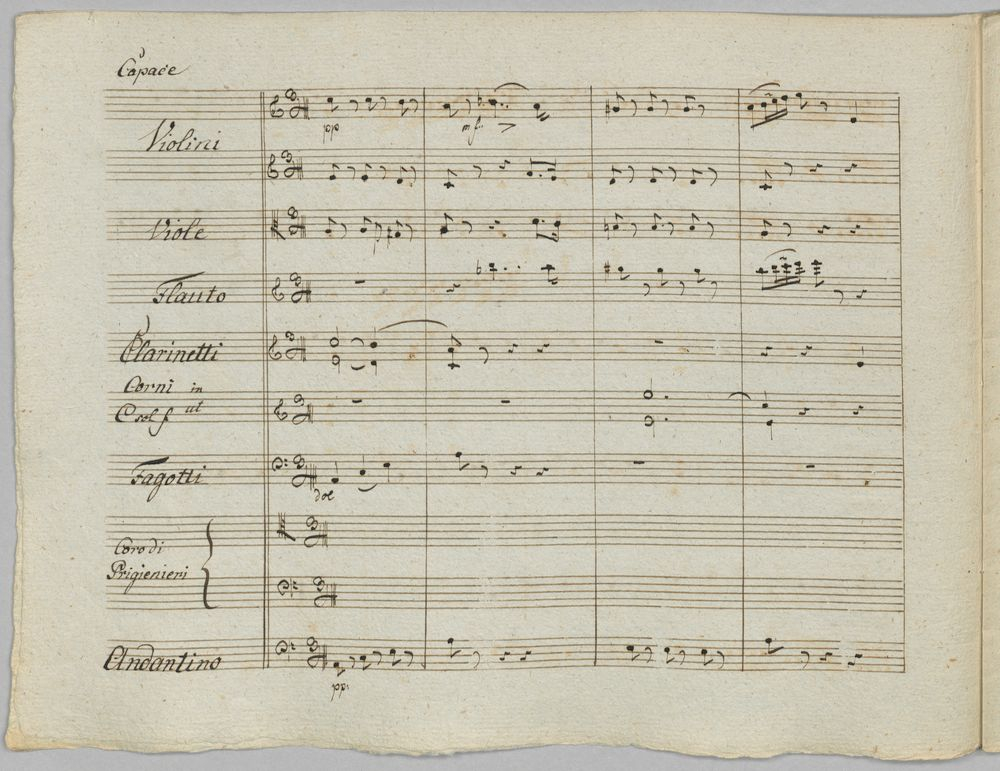 Capace
Violini
pp
mf
Viole
Flauto
Clarinetti
Corni in
C sol f ut
Fagotti
dol
Coro di
Prigienieri
Andantino
pp: